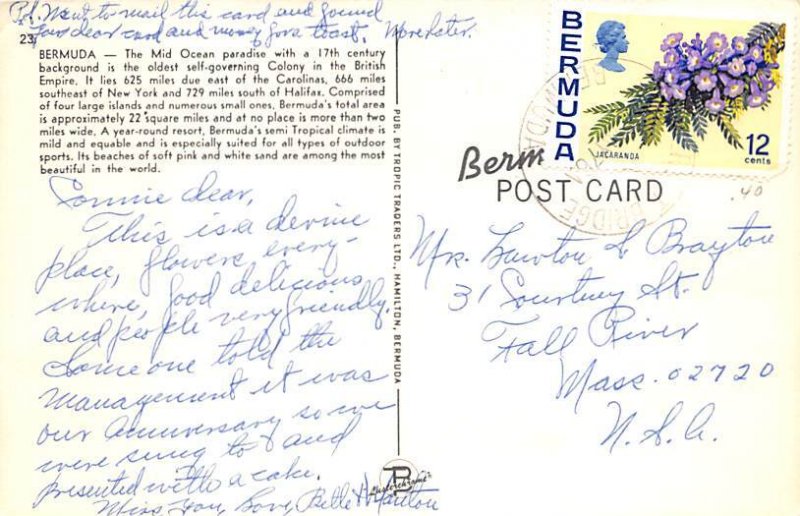 P.S. Went to mail this card and found
your dear card and money for a toast. More later.
23
BERMUDA — The Mid Ocean paradise with a 17th century
background is the oldest self-governing Colony in the British
Empire. It lies 625 miles due east of the Carolinas, 666 miles
southeast of New York and 729 miles south of Halifax. Comprised
of four large islands and numerous small ones, Bermuda's total area
is approximately 22 square miles and at no place is more than two
miles wide. A year-round resort, Bermuda's semi Tropical climate is
mild and equable and is especially suited for all types of outdoor
sports. Its beaches of soft pink and white sand are among the most
beautiful in the world.
Connie dear,
This is a devine
place, flowers every-
where, food delicious
and people very friendly.
Someone told the
management it was
our Anniversary so we
were sung to and
presented with a cake.
Miss you, Love, Belle &
PUB. BY TROPIC TRADERS LTD., HAMILTON, BERMUDA
BERMUDA
JACARANDA
12
cents
Berm
POST CARD
.40
BRIDGE
Mrs. Lawton S Brayton
31 Courtney St.
Fall River
Mass. 02720
U.S.A.